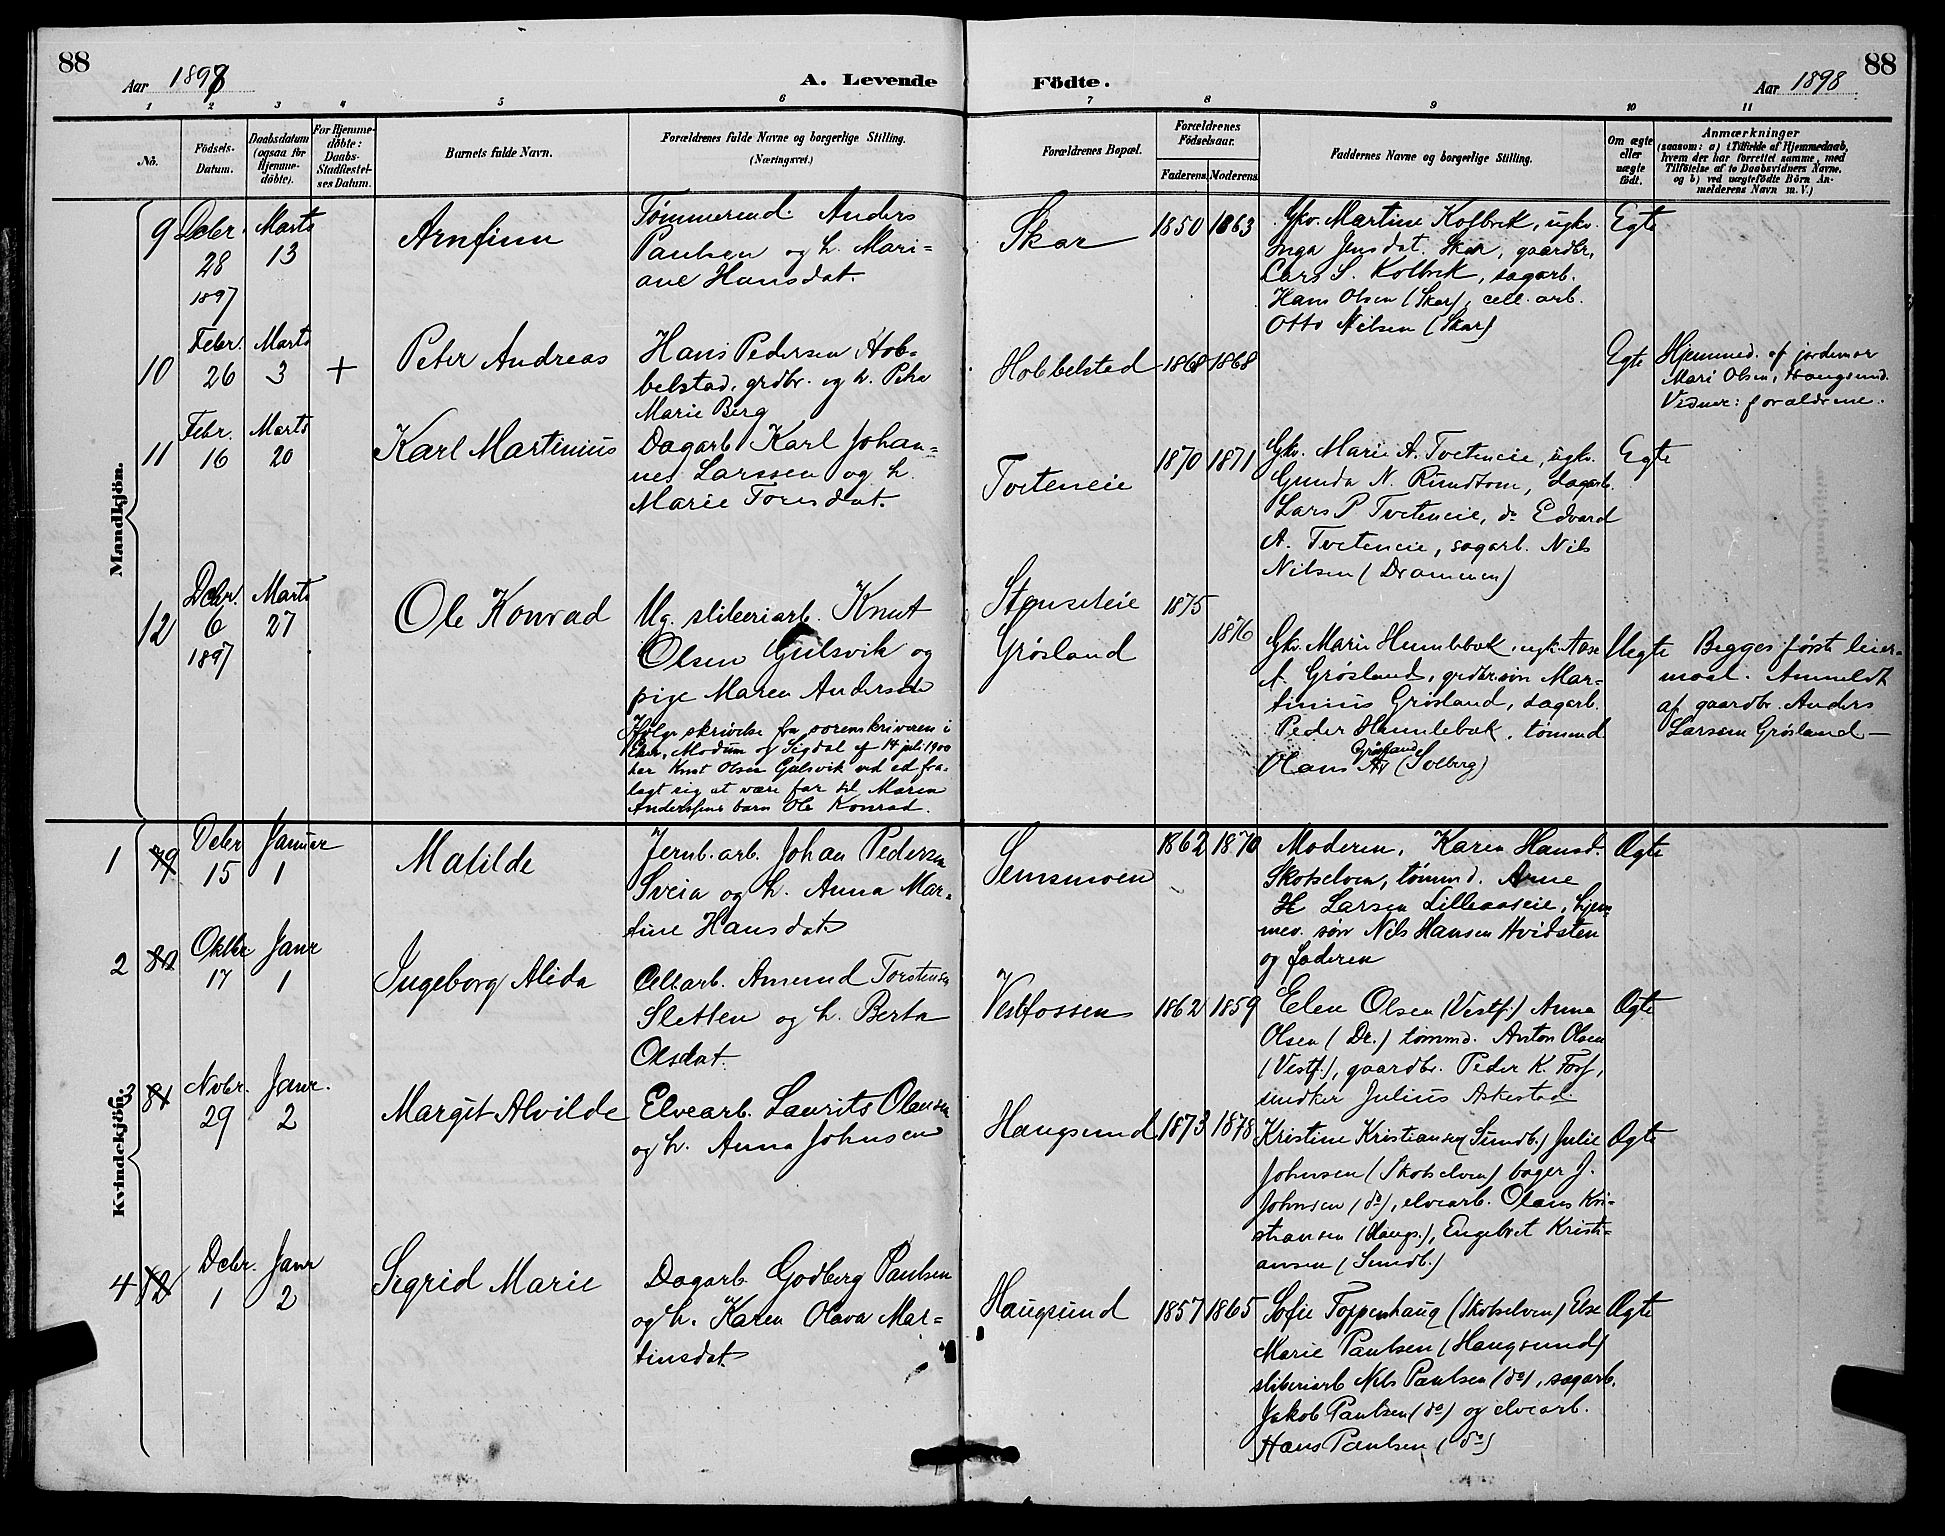 88
Aar 1898
A. Levende
Födte.
Aar 1898
88
1 2 3 4 5 6 7 8 9 10 11
No.
Födsels-Datum.
Daabsdatum (ogsaa for Hjemme-döbte).
For Hjemme-döbte: Daabs-Stadfæstel-ses Datum.
Barnets fulde Navn.
Forældrenes fulde Navne og borgerlige Stilling.
(Næringsvei.)
Forældrenes Bopæl.
Forældrenes Födselsaar.
Faderens. Moderens.
Faddernes Navne og borgerlige Stilling.
Om ægte eller uægte födt.
Anmærkninger
(saasom: a) i Tilfælde af Hjemmedaab,
hvem der har forrettet samme, med
Tilföielse af to Daabsvidners Navne.
og b) ved uægtefödte Börn An-
melderens Navn m. V.)
Mandkjön.
9
Dcbr. 28 1897
Marts 13
Arnfinn
Tømmermd. Anders
Paulsen og h. Mari-
ane Hansdat.
Skar
1850 1863
Gkv. Martine Kolbrek, ugkv.
Inga Jensdat. Skar, gaardbr.
Lars S. Kolbrek, sagarb.
Hans Olsen (Skar), cell. arb.
Otto Nilsen (Skar)
Egte
10
Febr. 26
Marts 3
+
Peter Andreas
Hans Pedersen Hob-
belstad, grdbr. og h. Petra
Marie Berg
Hobbelstad
1868 1868
Egte
Hjemmed. af jordemor
Mari Olsen, Haugsund.
Vidner: forældrene.
11
Febr. 16
Marts 20
Karl Martinius
Dagarb. Karl Johan-
nes Larssen og h.
Marie Toresdat.
Tveteneie
1870 1871
Gkv. Marie A. Tveteneie, ugkv.
Gunda N. Rundtom, dagarb.
Lars P Tveteneie, do Edvard
A. Tveteneie, sagarb. Nils
Nilsen (Drammen)
Egte
12
Dcbr. 6 1897
Marts 27
Ole Konrad
Ug. sliberiarb. Knut
Olsen Gulsvik og
pige Maren Andersen
Ifølge skrivelse fra sorenskriveren i
Eker, Modum og Sigdal af 14 juli 1900
har Knut Olsen Gulsvik ved ed fra-
lagt sig at være far til Maren
Anderssens barn Ole Konrad.
Stenseteie
Grøsland
1875
1876
Gkv. Marie Humlebæk, ugk. Aase
A. Grøsland, grdbr.søn Mar-
tinius Grøsland, dagarb.
Peder Humlebæk, tømmd
Olaus Grøsland (Solberg)
Uegte
Begges første leier-
maal. Anmeldt
af gaardbr. Anders
Larsen Grøsland —
Kvindekjön.
1 79
Dcbr 15
Januar 1
Matilde
Jernb. arb. Johan Pedersen
Sveia og h. Anna Mar-
tine Hansdat
Semsmoen
1862 1870
Moderen, Karen Hansd.
Skotselven, tømmd. Arne
H Larsen Lilleaaseie, hjem-
mev. søn Nils Hansen Hvidsten
og faderen
Ægte
2 80
Oktbr 17
Janr 1
Ingeborg Alida
Cellarb. Amund Torstensen
Sletten og h. Berta
Olsdat.
Vestfossen
1862 1859
Elen Olsen (Vestf.) Anna
Olsen (Dr.) tømmd. Anton Olsen
(Vestf.), gaardbr. Peder K. Fosf,
snedker Julius Askestad.
Ægte
3 81
Nvbr. 29
Janr. 2
Margit Alvilde
Elvearb. Laurits Olausen
og h. Anna Johnsen
Haugsund
1873 1878
Kristine Kristiansen (Sundb.) Julie
Johnsen (Skotselven) bager J.
Johnsen (do), elvearb. Olaus Kri-
stiansen (Haugs.), Engebret Kristi-
ansen (Sundb.)
Ægte
4 82
Dcbr. 1
Janr 2
Sigrid Marie
Dagarb. Godberg Paulsen
og h. Karen Olava Mar-
tinsdat.
Haugsund
1857 1865
Sofie Toppenhaug (Skotselven) Else
Marie Paulsen (Haugsund)
sliberiarb Nils Paulsen (do), sagarb.
Jakob Paulsen (do) og elvearb.
Hans Paulsen (do)
Ægte